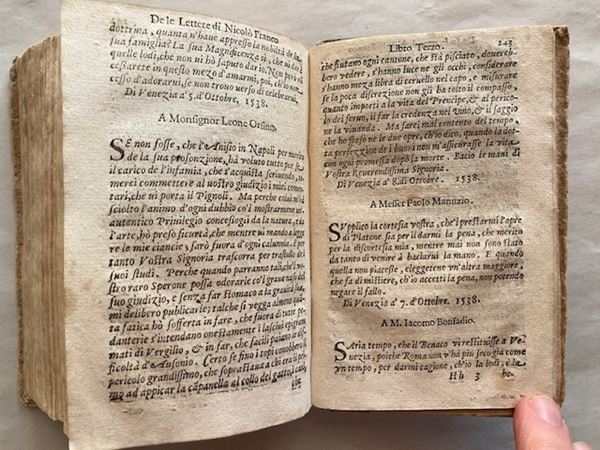 De le Lettere di Nicolò Franco
dottrina, quanta n'haue appresso la nobiltà de la
sua famiglia? La sua Magnificenza sì, che ui darà
quelle lodi, che non ui hò saputo dar io. Non per ciò
cessarete in questo mezo d'amarmi, poi, ch'io non
cesso d'adorarui, se non trouo uerso di celebrarui,
Di Venezia à 5. d'Ottobre, 1538.
A Monsignor Leone Orsino.
SE non fosse, che l'Anisio in Napoli per merito
de la sua prosonzione, hà voluto tutto per se
il carico de l'infamia, che s'acquista scriuendo, te-
merei commettere al uostro giudizio i miei comen-
tari, che ui porta il Pignoli. Ma perche colui m'hà
sciolto l'animo d'ogni dubbio co'l mostrarmene un
autentico Priuilegio concessogli da la natura, e da
l'arte, hò preso sicurtà, che mentre ui mando a legge
re le mie ciancie, sarò fuora d'ogni calumnia, e per
tanto Vostra Signoria trascorra per trastullo de i
suoi studi. Perche quando parranno tali, che'l vo-
stro raro Sperone possa odorarle co'l graue naso del
suo giudizio, e senza far stomaco a la grauità sua,
mi delibero publicarle; talche si vegga almen quan
ta fatica hò sofferta in fare, che fuora di tutte pe-
danterie s'intendano onestamente i lasciui epigram
mati di Vergilio, & in far, che facili paiano le dif-
ficoltà d'Ausonio. Certo se fino i topi conobbero il
pericolo grandissimo, che soprastaua a chi era pri-
mo ad appicar la campanella al collo del gatto,
Libro Terzo. 243
che fiutano ogni cantone, che hà pisciato, douereb-
bero vedere, s'hanno luce ne gli occhi, considerare
s'hanno meza libra di ceruello nel capo, e misurare
se la poca discrezione non gli hà tolto il compasso,
quanto importi a la vita del Prencipe, & al perico-
lo del seruo, il far la credenza nel vino, & il saggio
ne la viuanda. Ma sarei mal contento del tempo,
che hò speso ne le due opre, ch'io dico, quando la dot-
ta perfezzion de i buoni non m'assicurasse la vita
con ogni promessa dopò la morte. Bacio le mani di
Vostra Reuerendissima Signoria.
Di Venezia à 8. di Ottobre. 1538.
A Messer Paolo Manuzio.
SVpplico la cortesia vostra, che'l prestarmi l'opre
di Platone sia per il darmi la pena, che merito
per la discortesia mia, mentre mai non sono stato
da tanto di venire à baciarui la mano. E quando
quella non piacesse, eleggetene vn'altra maggiore,
che fa di mistiere, ch'io accetti la pena, non potendo
negare il fallo.
Di Venezia à 7. d'Ottobre. 1538.
A M. Iacomo Bonfadio.
SAria tempo, che il Benaco vi restituisse a Ve-
nezia, poiche Roma non v'hà più seco già come
vn tempo, per darmi cagione, ch'io la lodi, e la
Hh 3 be-